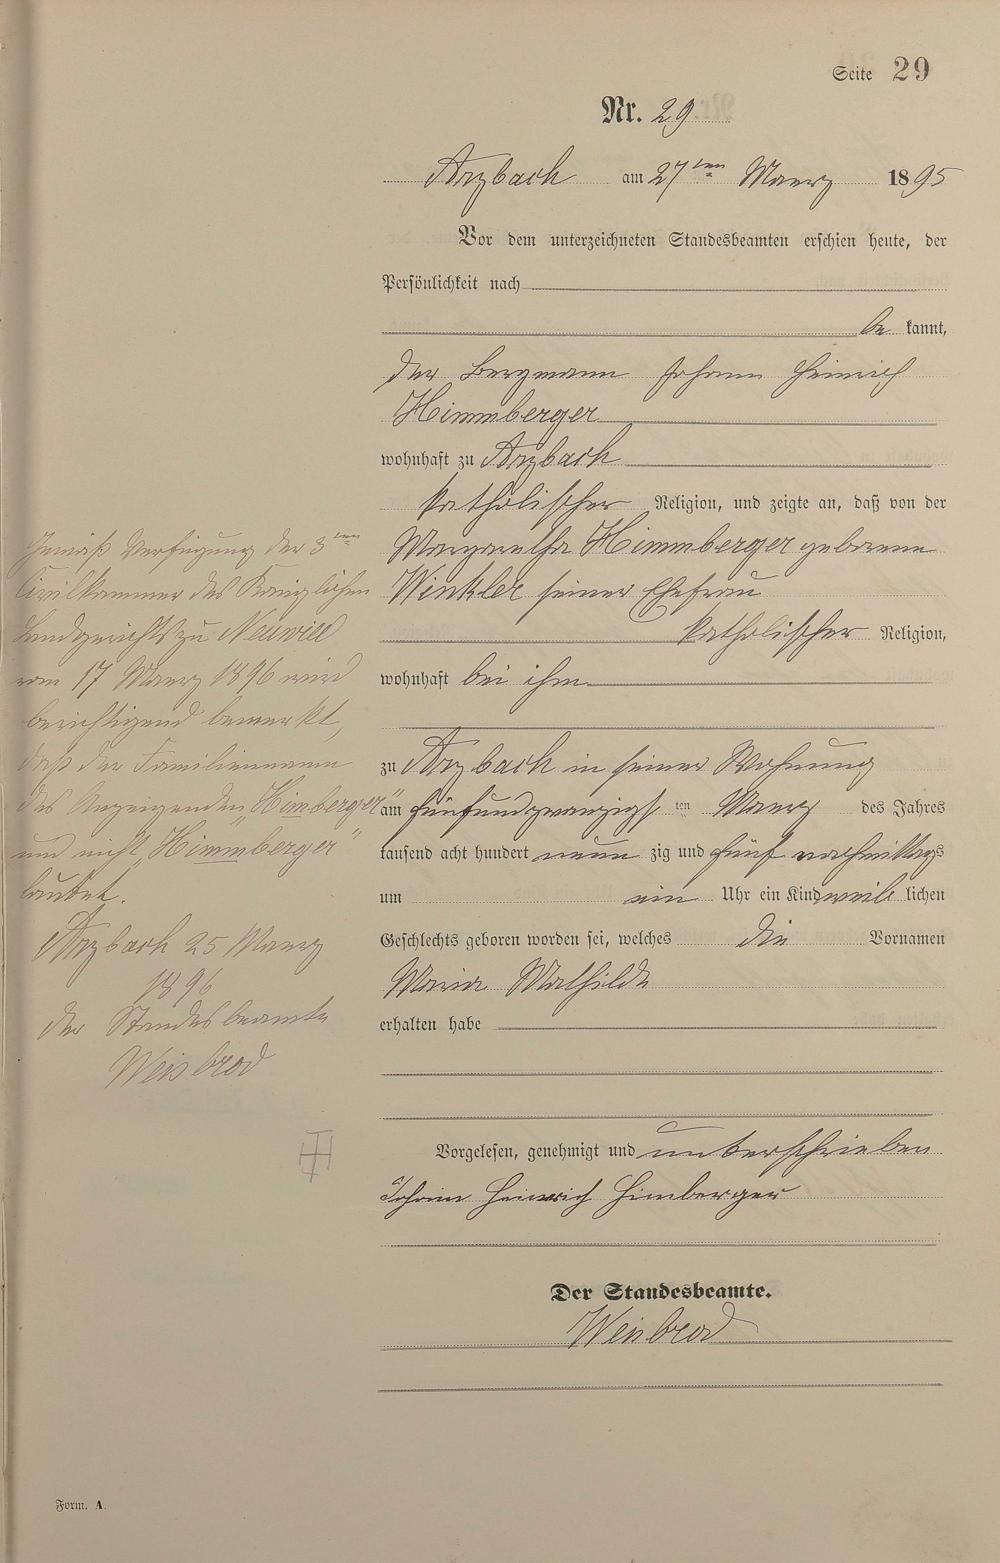 Seite 29
Nr. 29
Arzbach am 27ten Maerz 1895
Vor dem unterzeichneten Standesbeamten erschien heute, der
Persönlichkeit nach
be kannt,
der Bergmann Johann Heinrich
Himmberger
wohnhaft zu Arzbach
katholischer Religion, und zeigte an, daß von der
Margaretha Himmberger geborenen
Winkler seiner Ehefrau
katholischer Religion,
wohnhaft bei ihm
zu Arzbach in seiner Wohnung
am fünfundzwanzigsten Maerz des Jahres
tausend acht hundert neun zig und fünf nachmittags
um ein Uhr ein Kind weib lichen
Geschlechts geboren worden sei, welches die Vornamen
Maria Mathilde
erhalten habe
Vorgelesen, genehmigt und unterschrieben
Johann Heinrich Himberger
Der Standesbeamte.
Weisbrod
Gemäß Verfügung der 3ten
Civilkammer des Königlichen
Landgerichts zu Neuwied
vom 17 Maerz 1896 wird
berichtigend bemerkt,
daß der Familienname
des Anzeigenden „Himberger"
und nicht „Himmberger"
lautet.
Arzbach 25 Maerz
1896
Der Standesbeamte
Weisbrod
Form. A.